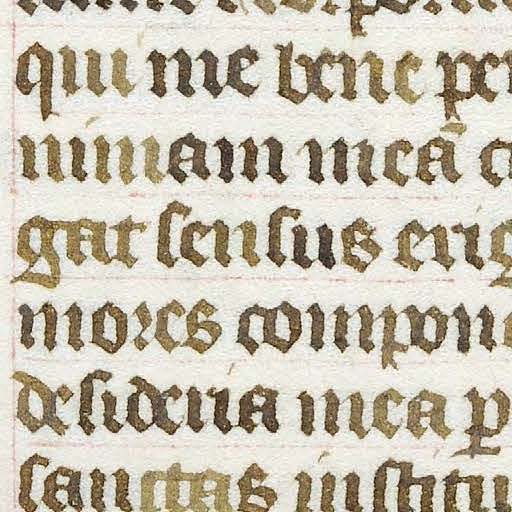 qui me bene per
niniam meā c
gat sensus erig
mores compon
desideria mea ꝑ
sanctas institu